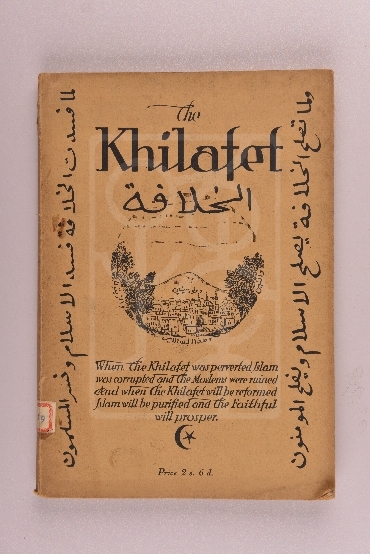 The
Khilafet
الخلافة
When The Khilafet was perverted Islam
was corrupted and The Muslems were ruined
And when The Khilafet will be reformed
Islam will be purified and the Faithful
will prosper.
Price 2 s. 6 d.
لما فسدت الخلافة فسد الاسلام وخسر المسلمون
ولما تصلح الخلافة يصلح الاسلام ويفلح المومنون